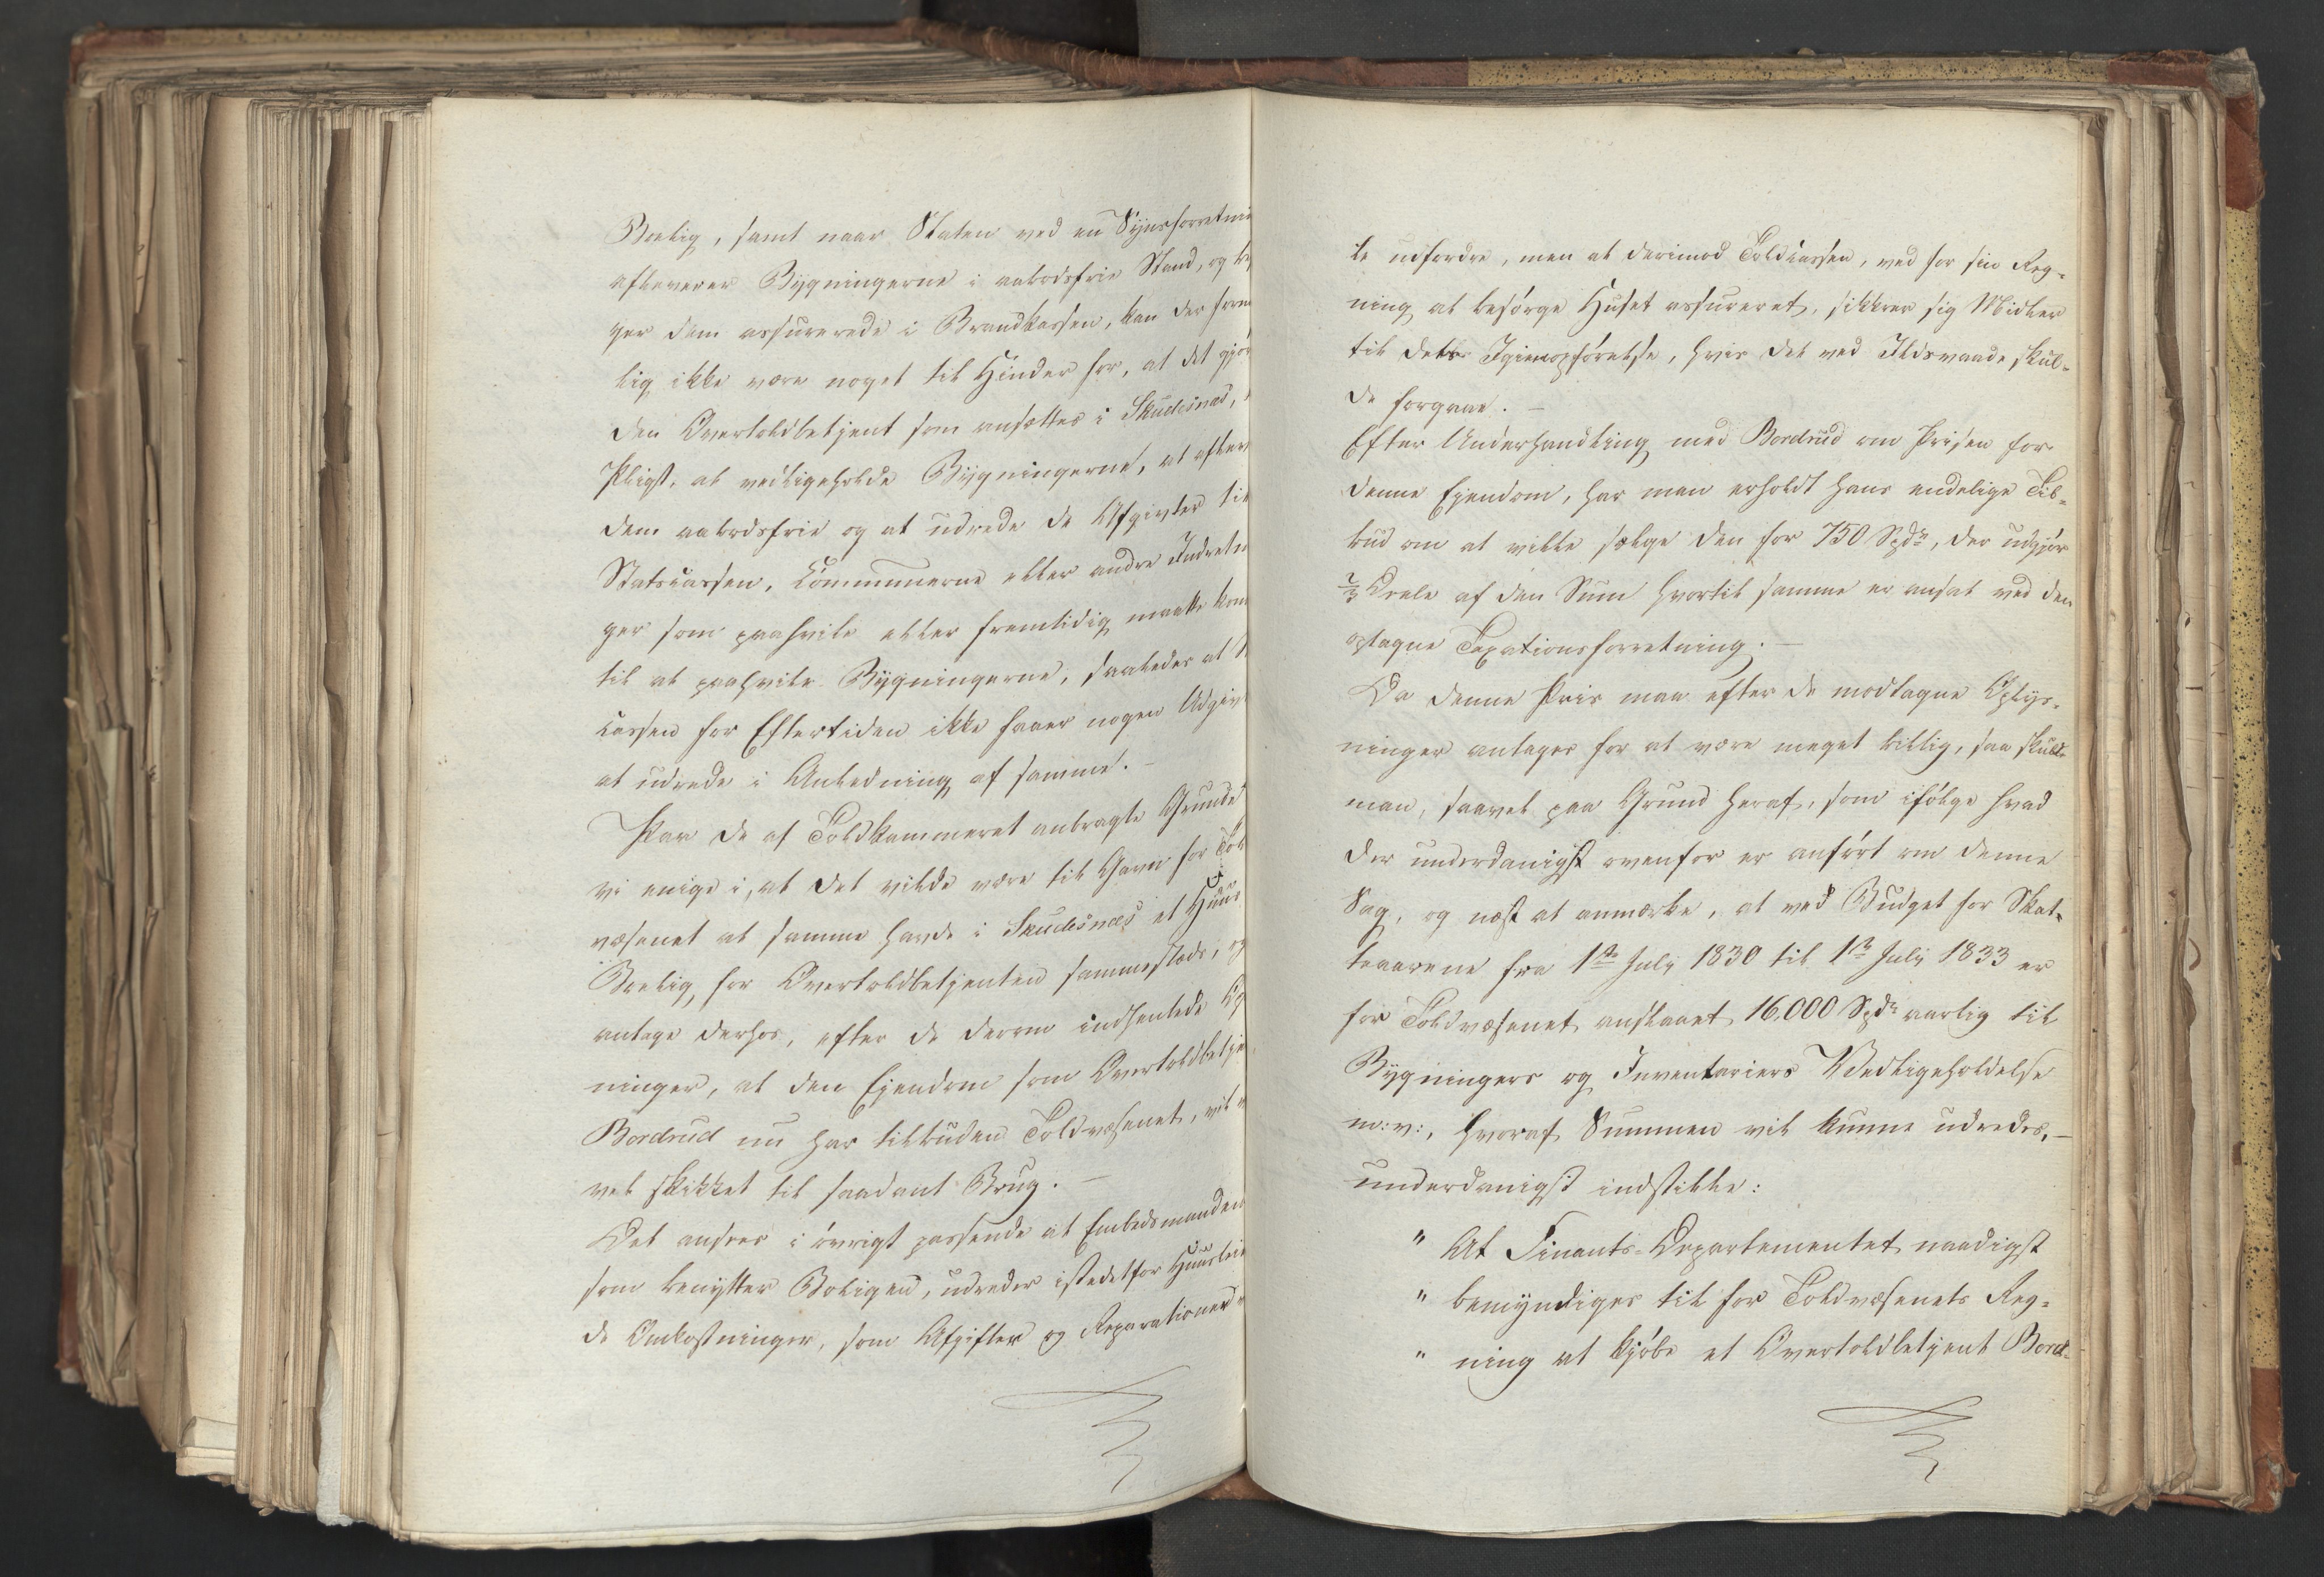 Boelig, samt naar Staten ved en Synsforretni
afleverer Bygningerne i aabodsfrie Stand, og
ger dem assurerede i Brandkassen, kan der form
lig ikke være noget til Hinder for, at det gjör
den Overtoldbetjent som ansættes i Skudesnæs,
Pligt, at vedligeholde Bygningerne, at aflev
dem aabodsfrie og at udrede de Afgivter til
Statscassen, Communerne eller andre Indretn
ger som paahvile eller fremtidig maatte kom
til at paahvile Bygningerne, saaledes at
cassen for Eftertiden ikke faaer nogen Udgiv
at udrede i Anledning af samme. —
Paa de af Toldkammeret anbragte Grunde
vi enige i, at det vilde være til Gavn for Tol
væsenet at samme havde i Skudesnæs et Huus
Boelig, for Overtoldbetjenten sammesteds, og
antage derhos, efter de derom indhentede Op
ninger, at den Ejendom som Overtoldbetje
Bordrud nu har tilbuden Toldvæsenet, vil
vel skikket til saadant Brug. —
Det ansees i övrigt passende at Embedsmanden
som benytter Boligen, udreder istedetfor Huusleie
de Omkostninger, som Afgifter og Reparationer
le udfordre, men at derimod Toldcassen, ved for sin Reg-
ning at besörge Huset assureret, sikkrer sig Midler
til dets Igienopförelse, hvis det ved Ildsvaade skul-
de forgaae. —
Efter Underhandling med Bordrud om Prisen for
denne Ejendom, har man erholdt hans endelige Til-
bud om at ville sælge den for 750 Spdr, der udgjör
2/3 Deele af den Sum hvortil samme er ansat ved den
optagne Taxationsforretning. —
Da denne Pris maa efter de modtagne Oplys-
ninger antages for at være meget billig, saa skulde
man, saavel paa Grund heraf, som ifölge hvad
der underdanigst ovenfor er anfört om denne
Sag, og næst at anmærke, at ved Budget for Skat-
teaarene fra 1ste July 1830 til 1ste July 1833 er
for Toldvæsenet anslaaet 16,000 Spdr aarlig til
Bygningers og Inventariers Vedligeholdelse
m: v:, hvoraf Summen vil kunne udredes, —
underdanigst indstille:
" At Finants-Departementet naadigst
" bemyndiges til for Toldvæsenets Reg-
" ning at kjöbe et Overtoldbetjent Bord-